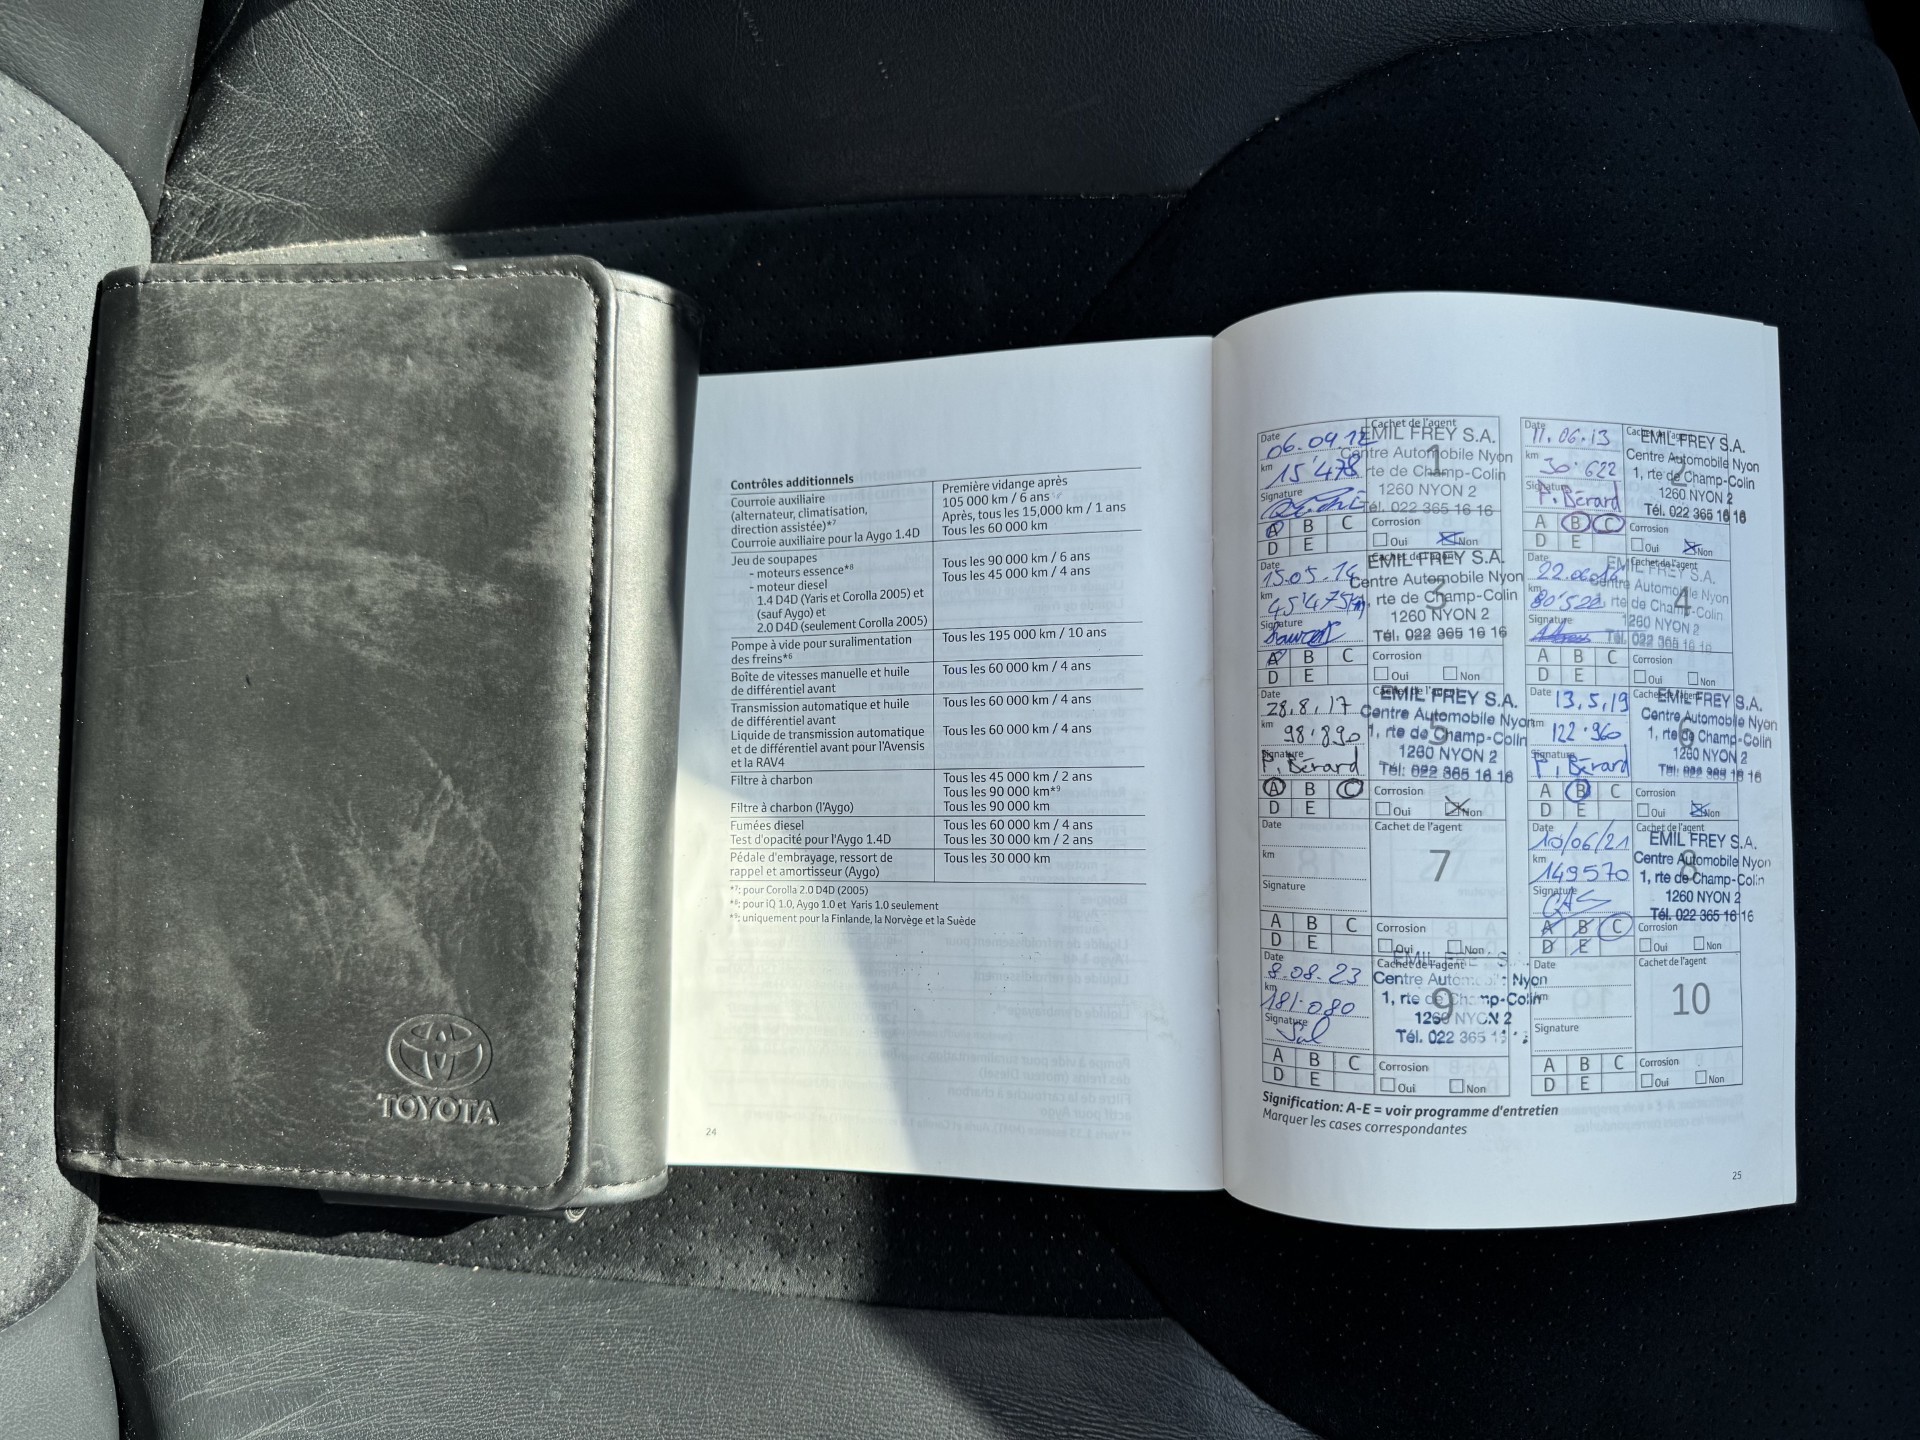 TOYOTA
Contrôles additionnels
Courroie auxiliaire
(alternateur, climatisation,
direction assistée)*⁷
Courroie auxiliaire pour la Aygo 1.4D
Première vidange après
105 000 km / 6 ans
Après, tous les 15,000 km / 1 ans
Tous les 60 000 km
Jeu de soupapes
- moteurs essence*⁸
- moteurs diesel
1.4 D4D (Yaris et Corolla 2005) et
(sauf Aygo) et
2.0 D4D (seulement Corolla 2005)
Tous les 90 000 km / 6 ans
Tous les 45 000 km / 4 ans
Pompe à vide pour suralimentation
des freins*⁶
Tous les 195 000 km / 10 ans
Boîte de vitesses manuelle et huile
de différentiel avant
Tous les 60 000 km / 4 ans
Transmission automatique et huile
de différentiel avant
Liquide de transmission automatique
et de différentiel avant pour l'Avensis
et la RAV4
Tous les 60 000 km / 4 ans
Tous les 60 000 km / 4 ans
Filtre à charbon
Filtre à charbon (l'Aygo)
Tous les 45 000 km / 2 ans
Tous les 90 000 km*⁹
Tous les 90 000 km
Fumées diesel
Test d'opacité pour l'Aygo 1.4D
Tous les 60 000 km / 4 ans
Tous les 30 000 km / 2 ans
Pédale d'embrayage, ressort de
rappel et amortisseur (Aygo)
Tous les 30 000 km
pour Corolla 2.0 D4D (2005)
pour iQ 1.0, Aygo 1.0 et Yaris 1.0 seulement
uniquement pour la Finlande, la Norvège et la Suède
24
Date 06.09.12
km 15'478
Signature
A B C
D E
Cachet de l'agent
1
EMIL FREY S.A.
Centre Automobile Nyon
rte de Champ-Colin
1260 NYON 2
Tél. 022 365 16 16
Corrosion
Oui Non
Date 11.06.13
km 30'622
Signature P. Bérard
A B C
D E
Cachet de l'agent
2
EMIL FREY S.A.
Centre Automobile Nyon
1, rte de Champ-Colin
1260 NYON 2
Tél. 022 365 16 16
Corrosion
Oui Non
Date 15.05.14
km 45'475
Signature
A B C
D E
Cachet de l'agent
3
EMIL FREY S.A.
Centre Automobile Nyon
rte de Champ-Colin
1260 NYON 2
Tél. 022 365 16 16
Corrosion
Oui Non
Date
km
Signature
A B C
D E
Cachet de l'agent
4
EMIL FREY S.A.
Centre Automobile Nyon
rte de Champ-Colin
1260 NYON 2
Tél. 022 365 16 16
Corrosion
Oui Non
Date 28.8.17
km 98'890
Signature P. Bérard
A B C
D E
Cachet de l'agent
5
EMIL FREY S.A.
Centre Automobile Nyon
1, rte de Champ-Colin
1260 NYON 2
Tél. 022 365 16 16
Corrosion
Oui Non
Date 13.5.19
km 122'960
Signature P. Bérard
A B C
D E
Cachet de l'agent
6
EMIL FREY S.A.
Centre Automobile Nyon
1, rte de Champ-Colin
1260 NYON 2
Tél. 022 365 16 16
Corrosion
Oui Non
Date
km
Signature
A B C
D E
Cachet de l'agent
7
Corrosion
Oui Non
Date 10/06/21
km 149570
Signature
A B C
D E
Cachet de l'agent
8
EMIL FREY S.A.
Centre Automobile Nyon
1, rte de Champ-Colin
1260 NYON 2
Tél. 022 365 16 16
Corrosion
Oui Non
Date 8.08.23
km 181'080
Signature
A B C
D E
Cachet de l'agent
9
Centre Automobile Nyon
1, rte de Champ-Colin
1260 NYON 2
Tél. 022 365
Corrosion
Oui Non
Date
km
Signature
A B C
D E
Cachet de l'agent
10
Corrosion
Oui Non
Signification: A-E = voir programme d'entretien
Marquer les cases correspondantes
25